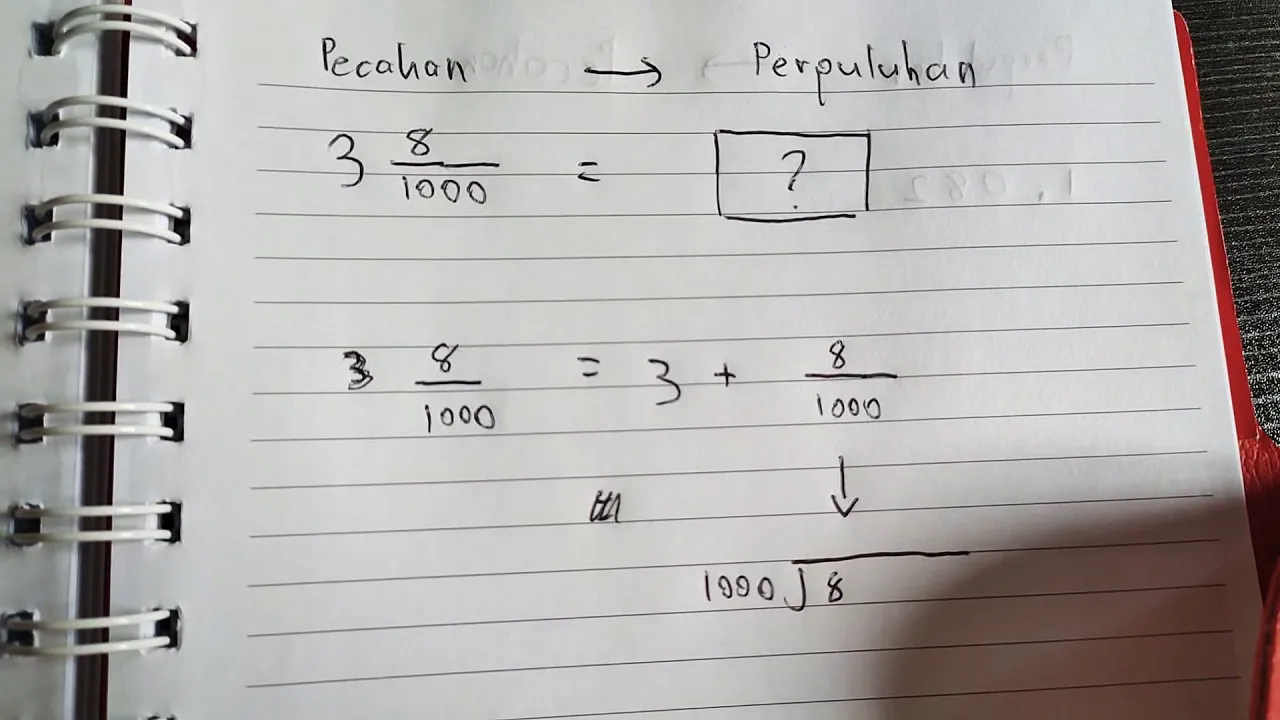 Pecahan → Perpuluhan
3 8/1000 = ?
3 8/1000 = 3 + 8/1000
↓
1000 ) 8